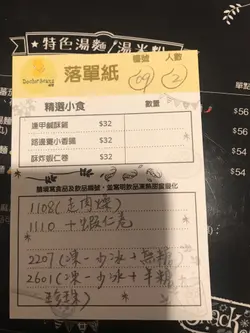 ★特色湯麵/湯米粉
落單紙
檯號
人數
69
2
精選小食
數量
逢甲鹹酥雞 $32
路邊攤小香腸 $32
酥炸蝦仁卷 $32
1108(走肉燥)
1110 + 蝦仁卷
2207(凍一少冰+無糖)
2601(凍一少冰+半糖+
$54
$56
$56